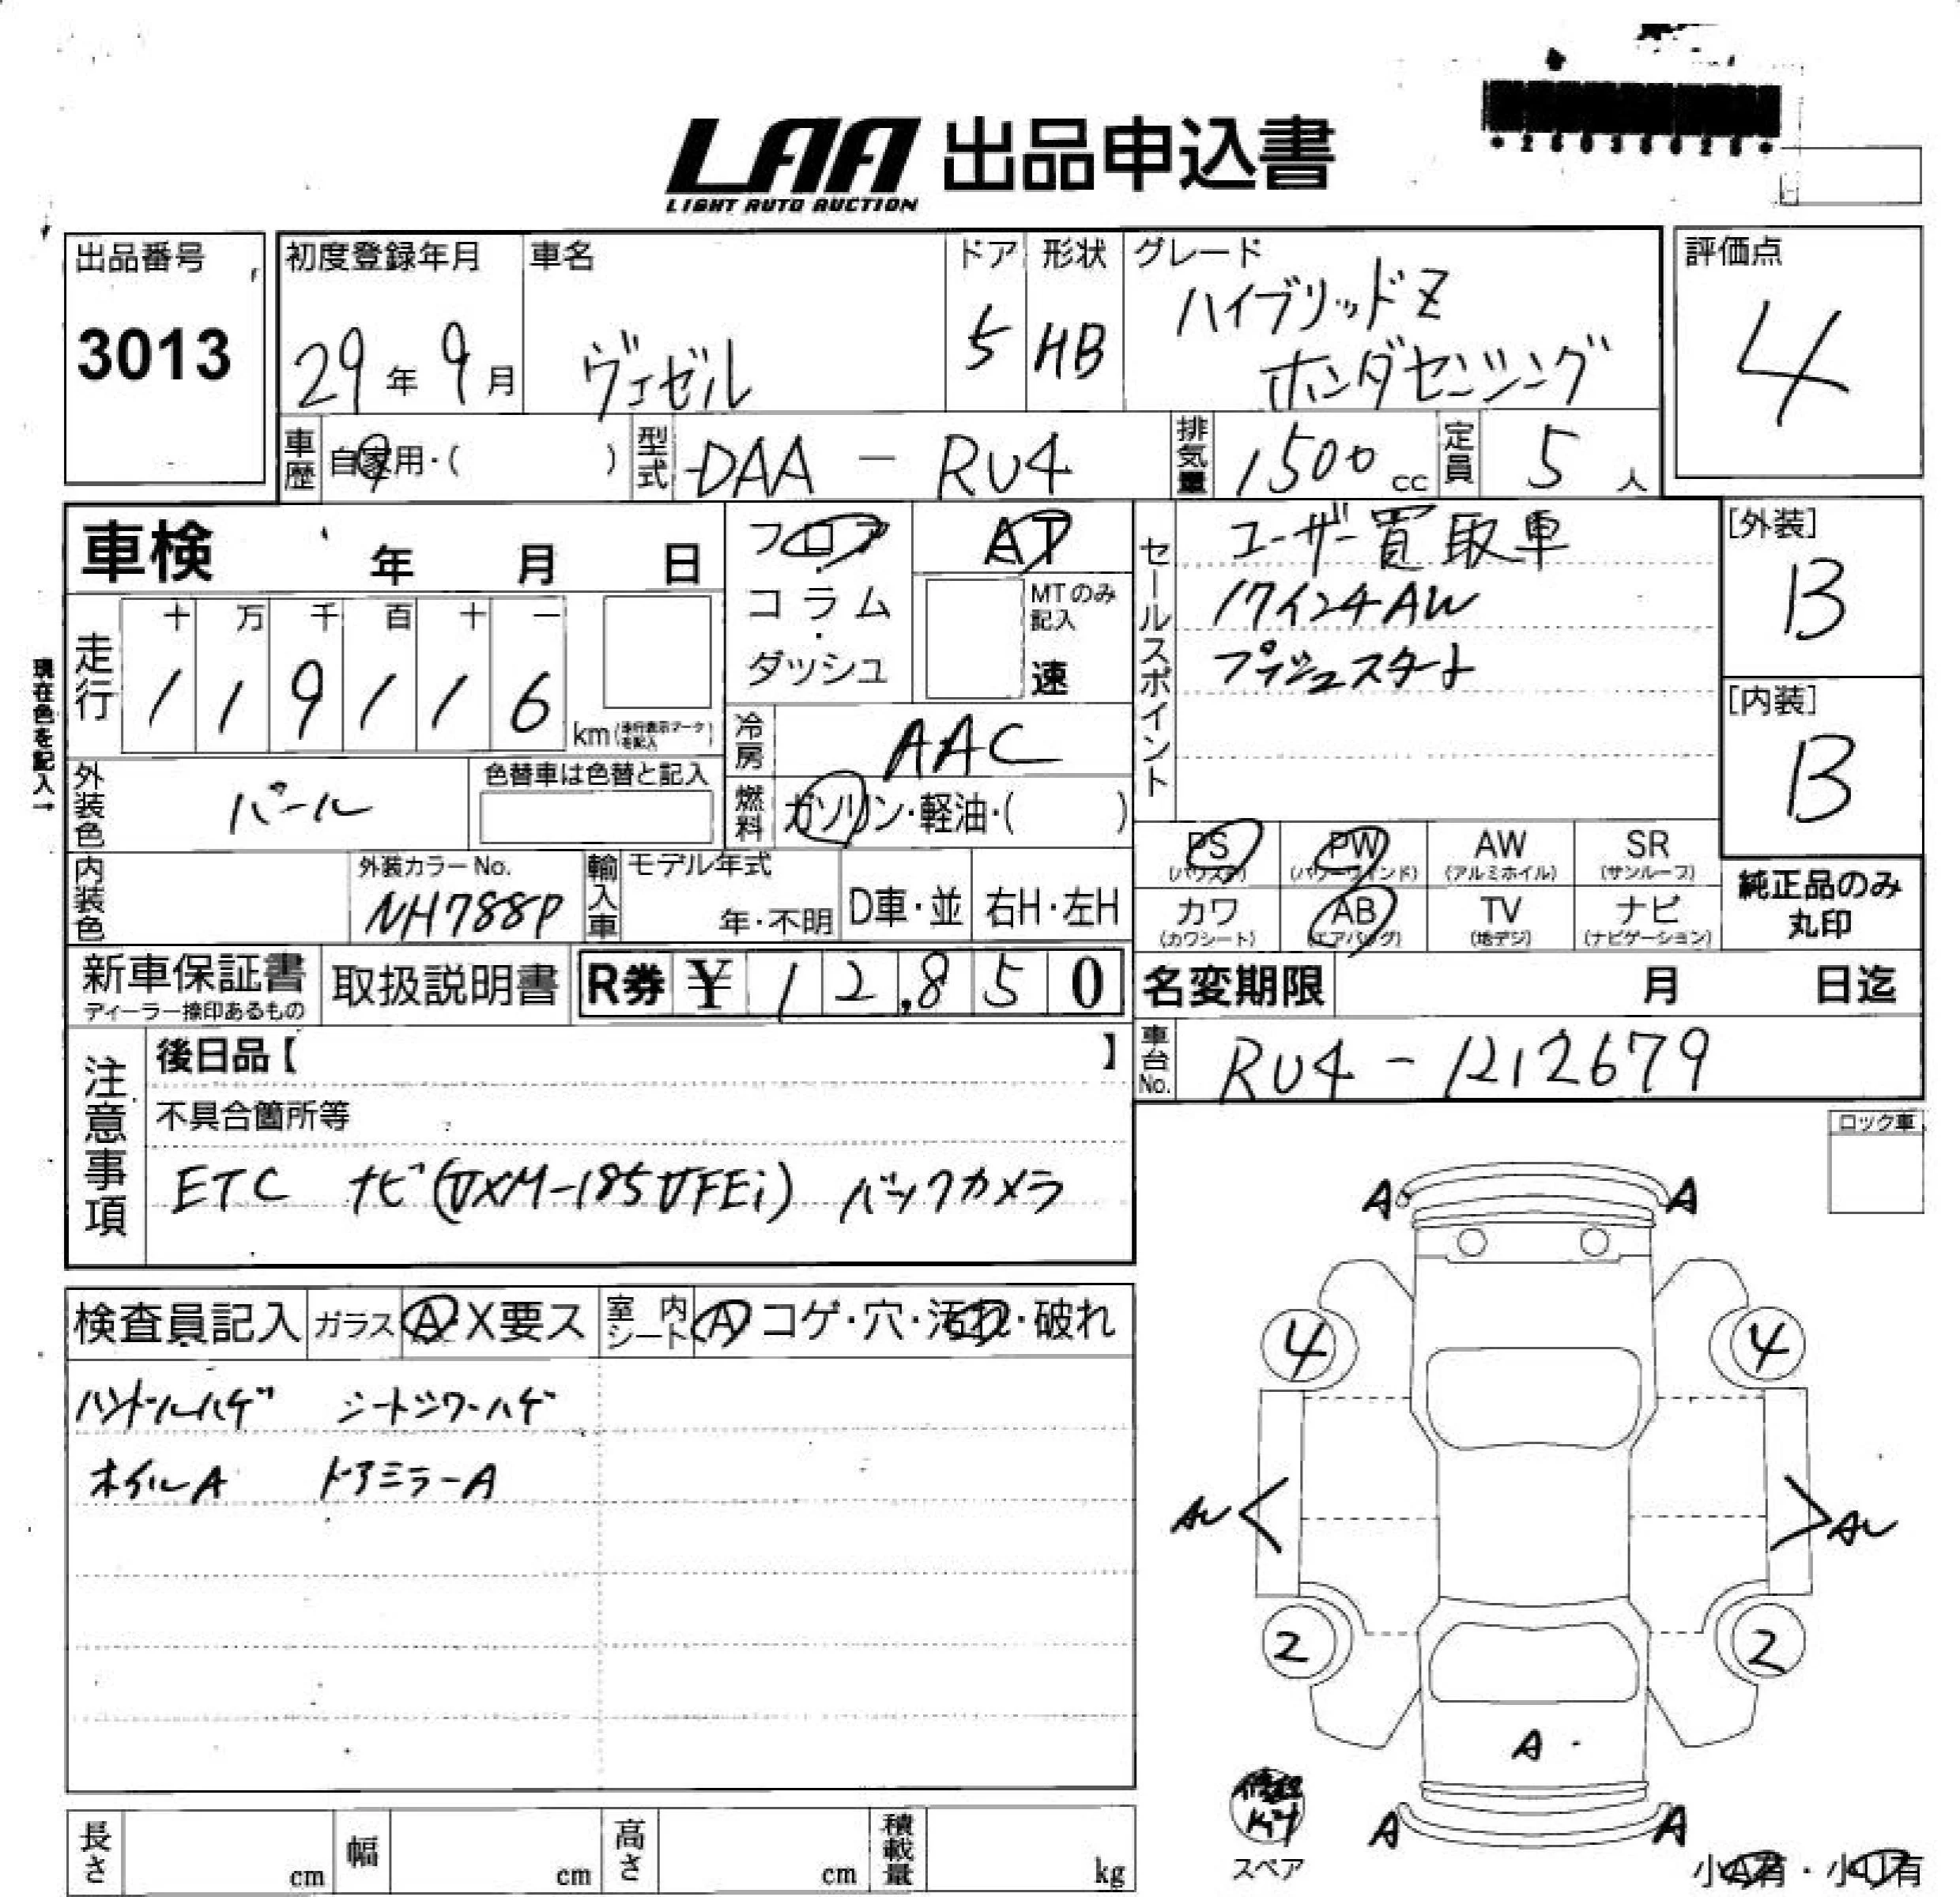 LAA 出品申込書
LIGHT AUTO AUCTION
出品番号
3013
初度登録年月
29年 9月
車名
ヴェゼル
ドア
5
形状
HB
グレード
ハイブリッドZ
ホンダセンシング
評価点
4
車歴 自家用・( )
型式 DAA - RU4
排気量 1500 cc
定員 5 人
車検 年 月 日
フロア
・
コラム
・
ダッシュ
AT
MTのみ
記入
速
セールスポイント
ユーザー買取車
17インチAW
プッシュスタート
[外装]
B
[内装]
B
現在色を記入→
走行
十 万 千 百 十 一
1 1 9 1 1 6
km(走行表示マークを記入)
冷房 AAC
燃料 ガソリン・軽油・( )
外装色 パール
色替車は色替と記入
内装色
外装カラーNo.
NH788P
輸入車
モデル年式
年・不明
D車・並
右H・左H
PS (パワステ)
PW (パワーウィンド)
AW (アルミホイル)
SR (サンルーフ)
カワ (カワシート)
AB (エアバッグ)
TV (地デジ)
ナビ (ナビゲーション)
純正品のみ
丸印
新車保証書
ディーラー捺印あるもの
取扱説明書
R券 ¥ 12,850
名変期限 月 日迄
車台No. RU4 - 1212679
注意事項
後日品【 】
不具合箇所等
ETC ナビ(VXM-185VFEi) バックカメラ
ロック車
検査員記入
ガラス A X要ス
室内シート A コゲ・穴・汚れ・破れ
ハンドルハゲ シートシワーハゲ
ホイルA ドアミラーA
A A
4 4
AU AU
2 2
A
A A
修理
キット
スペア
小A有・小U有
長さ cm
幅 cm
高さ cm
積載量 kg